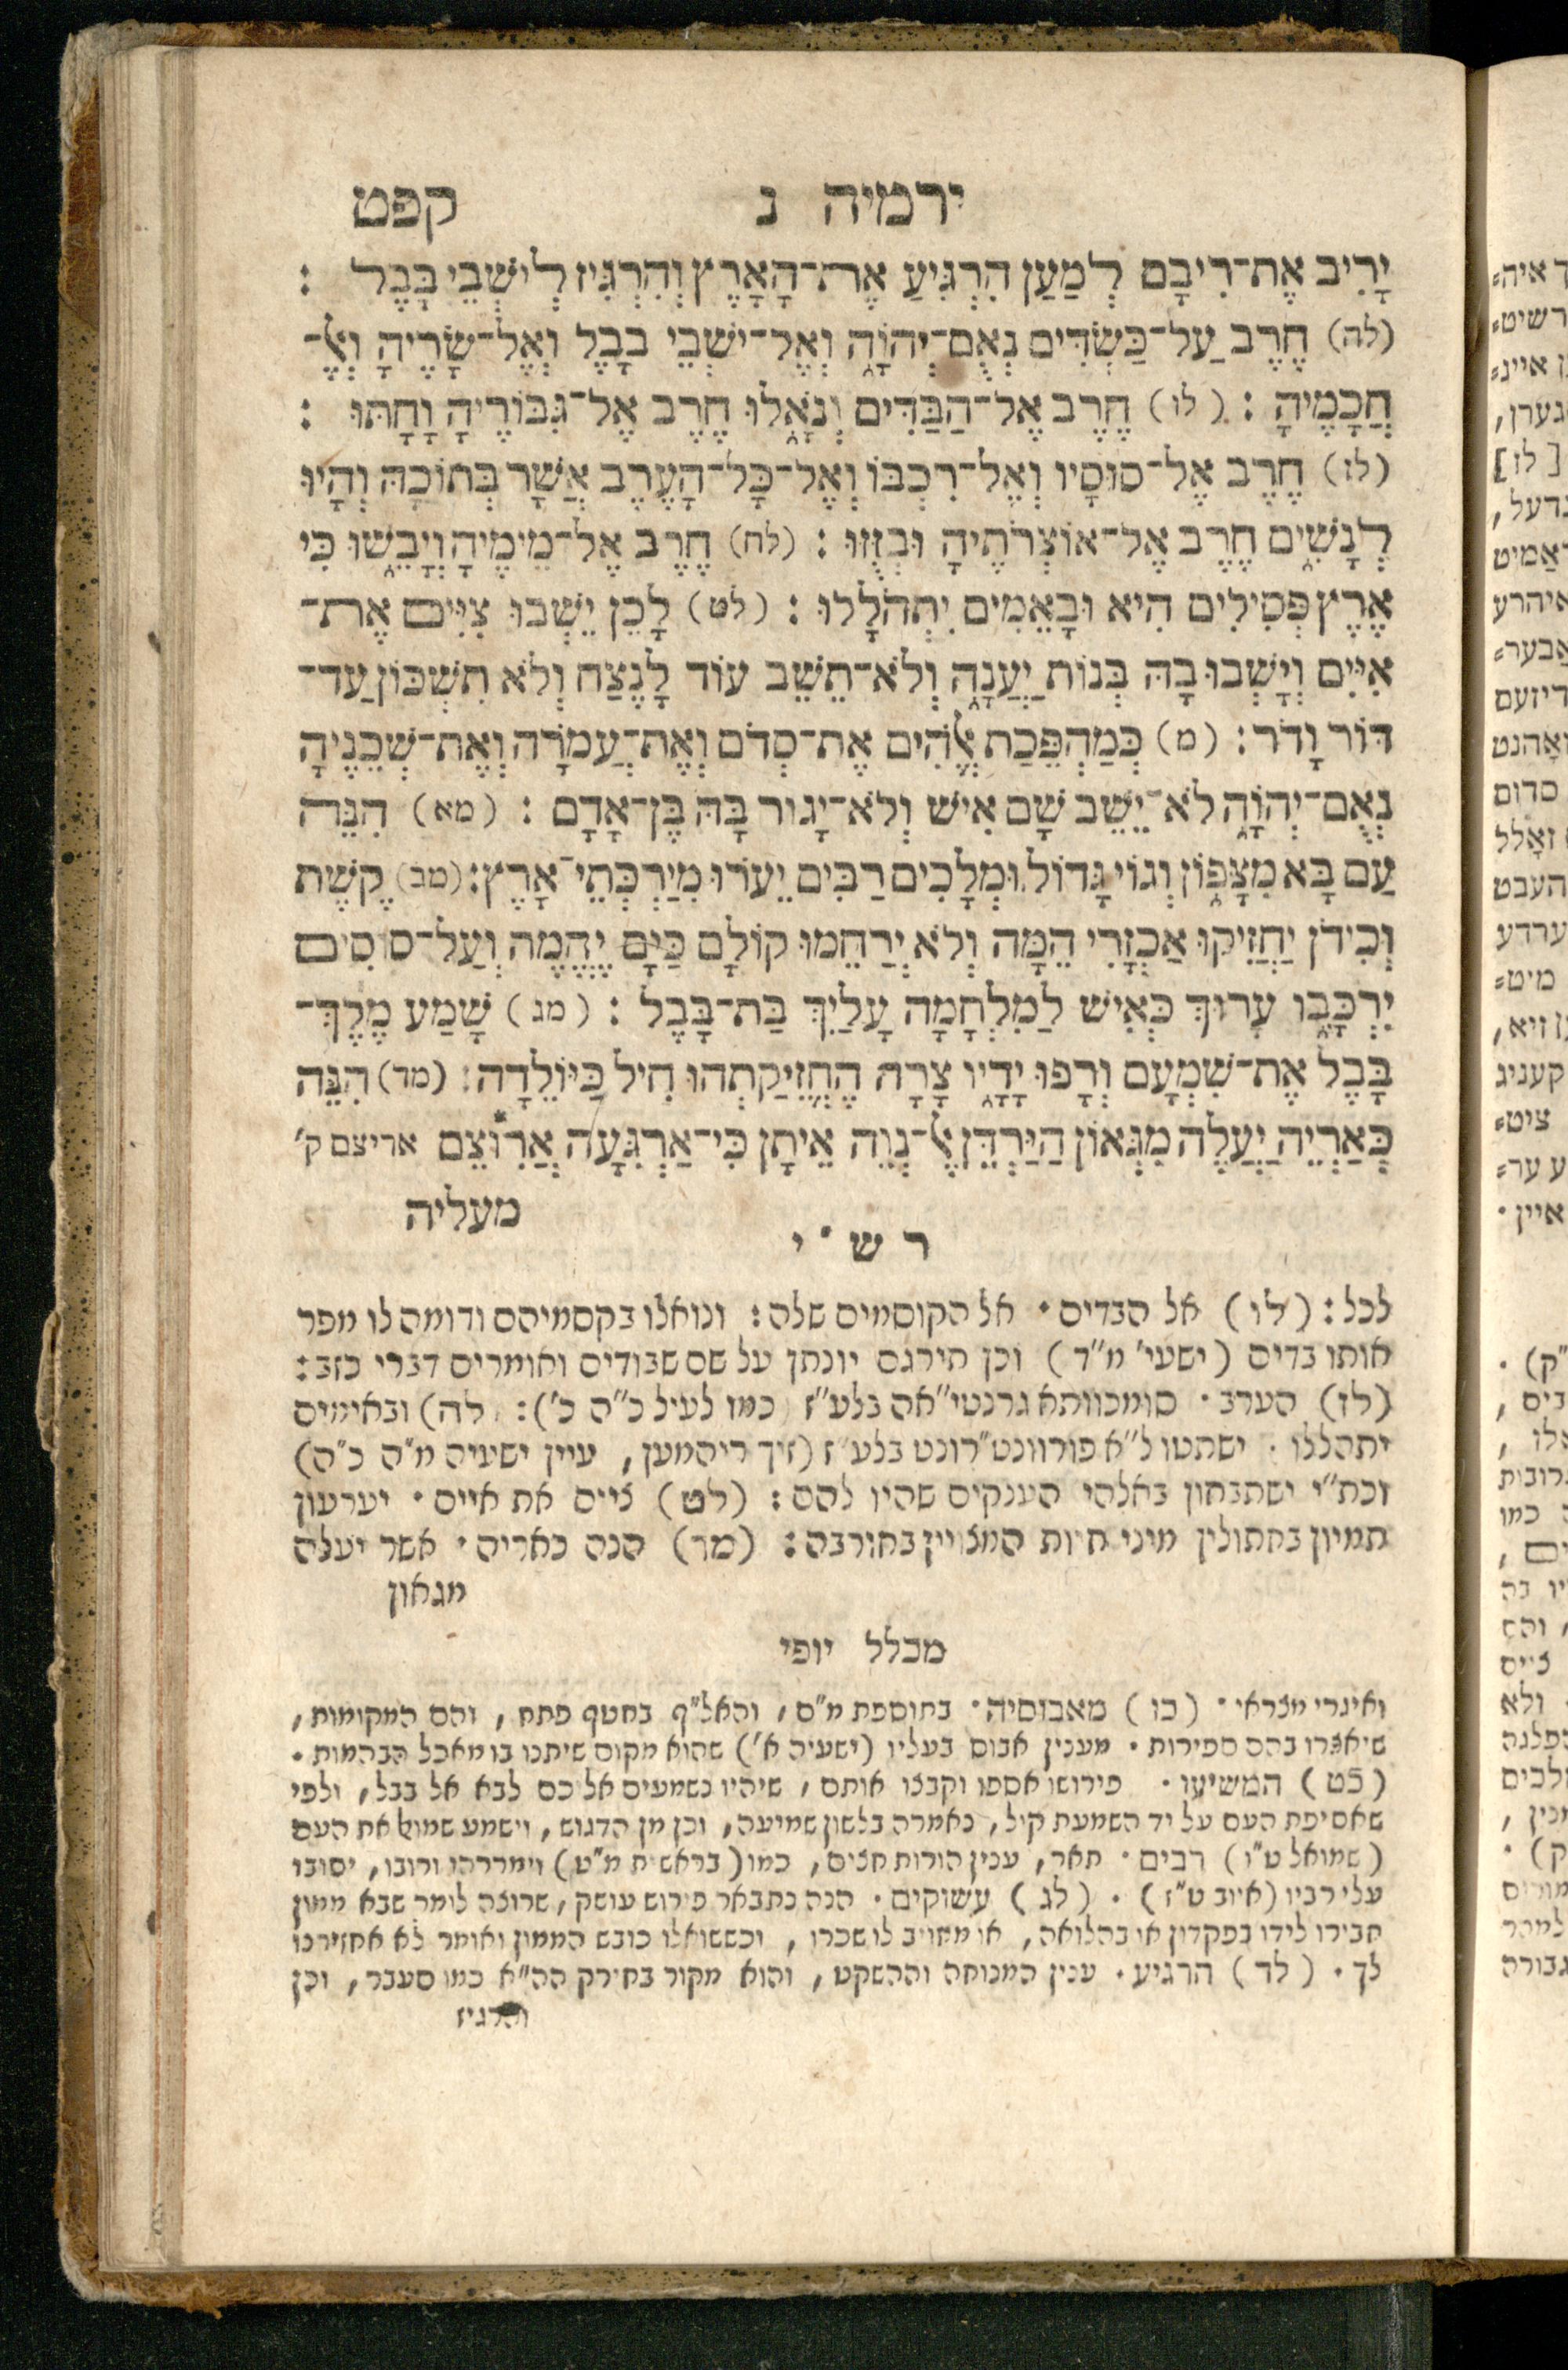 ירמיה נ קפט
יָרִיב אֶת־רִיבָם לְמַעַן הִרְגִּיעַ אֶת־הָאָרֶץ וְהִרְגִּיז לְיֹשְׁבֵי בָּבֶל :
(לה) חֶרֶב עַל־כַּשְׂדִּים נְאֻם־יְהוָֹה וְאֶל־יֹשְׁבֵי בָבֶל וְאֶל־שָׂרֶיהָ וְאֶל־
חֲכָמֶיהָ : (לו) חֶרֶב אֶל־הַבַּדִּים וְנֹאָלוּ חֶרֶב אֶל־גִּבּוֹרֶיהָ וָחָתּוּ :
(לז) חֶרֶב אֶל־סוּסָיו וְאֶל־רִכְבּוֹ וְאֶל־כָּל־הָעֶרֶב אֲשֶׁר בְּתוֹכָהּ וְהָיוּ
לְנָשִׁים חֶרֶב אֶל־אוֹצְרֹתֶיהָ וּבֻזָּזוּ : (לח) חֹרֶב אֶל־מֵימֶיהָ וְיָבֵשׁוּ כִּי
אֶרֶץ פְּסִילִים הִיא וּבָאֵמִים יִתְהֹלָלוּ : (לט) לָכֵן יֵשְׁבוּ צִיִּים אֶת־
אִיִּים וְיָשְׁבוּ בָהּ בְּנוֹת יַעֲנָה וְלֹא־תֵשֵׁב עוֹד לָנֶצַח וְלֹא תִשְׁכּוֹן עַד־
דּוֹר וָדֹר : (מ) כְּמַהְפֵּכַת אֱלֹהִים אֶת־סְדֹם וְאֶת־עֲמֹרָה וְאֶת־שְׁכֵנֶיהָ
נְאֻם־יְהוָֹה לֹא־יֵשֵׁב שָׁם אִישׁ וְלֹא־יָגוּר בָּהּ בֶּן־אָדָם : (מא) הִנֵּה
עַם בָּא מִצָּפוֹן וְגוֹי גָּדוֹל וּמְלָכִים רַבִּים יֵעֹרוּ מִיַּרְכְּתֵי־אָרֶץ : (מב) קֶשֶׁת
וְכִידֹן יַחֲזִיקוּ אַכְזָרִי הֵמָּה וְלֹא יְרַחֵמוּ קוֹלָם כַּיָּם יֶהֱמֶה וְעַל־סוּסִים
יִרְכָּבוּ עָרוּךְ כְּאִישׁ לַמִּלְחָמָה עָלַיִךְ בַּת־בָּבֶל : (מג) שָׁמַע מֶלֶךְ־
בָּבֶל אֶת־שִׁמְעָם וְרָפוּ יָדָיו צָרָה הֶחֱזִיקַתְהוּ חִיל כַּיּוֹלֵדָה : (מד) הִנֵּה
כְּאַרְיֵה יַעֲלֶה מִגְּאוֹן הַיַּרְדֵּן אֶל־נְוֵה אֵיתָן כִּי־אַרְגִּעָה אֲרִוֹצֵם אריצם ק'
מעליה
רש"י
לכל : (לו) אל הבדים · אל הקוסמים שלה : ונואלו בקסמיהם ודומה לו מפר
אותו בדים (ישעי' מ"ד) וכן תירגם יונתן על שם שבודים ואומרים דברי כזב :
(לז) הערב · סומכוותא גרנטי"אה בלע"ז כמו לעיל כ"ה כ') : לח) ובאימים
יתהללו · ישתטו ל"א פורוונט"רונט בלע"ז (זיך ריהמען, עיין ישעיה מ"ה כ"ה)
וכת"י ישתבחון באלהי הענקים שהיו להם : (לט) ציים את איים · יערעון
תמיון בחתולין מיני חיות המצויין בחורבה : (מד) הנה כאריה · אשר יעלה
מגאון
מכלל יופי
ואיגרי מצראי · (כו) מאבוסיה · בתוספת מ"ם, והאל"ף בחטף פתח, והם המקומות,
שיאצרו בהם ספירות · מענין אבוס בעליו (ישעיה א') שהוא מקום שיתנו בו מאכל הבהמות ·
(כט) השמיעו · פירושו אספו וקבצו אותם, שיהיו נשמעים אליכם לבא אל בבל, ולפי
שאסיפת העם על יד השמעת קול, נאמרה בלשון שמיעה, וכן מן הדגוש, וישמע שמואל את העם
(שמואל ט"ו) רבים · תאר, ענין הורות חצים, כמו (בראשית מ"ט) וימררהו ורובו, יסובו
עלי רביו (איוב ט"ז) · (לג) עשוקים · הנה נתבאר פירוש עושק, שרוצה לומר שבא ממון
חבירו לידו בפקדון או בהלואה, או מחויב לו שכרו, וכששואלו כובש הממון ואומר לא אחזירנו
לך · (לד) הרגיע · ענין המנוחה וההשקט, והוא מקור בחירק הה"א כמו סעבר, וכן
והרגיז